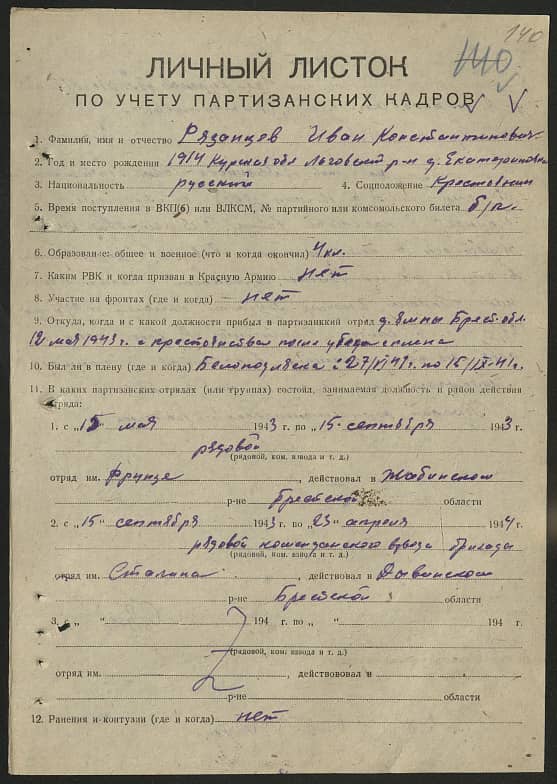 140
110
ЛИЧНЫЙ ЛИСТОК
ПО УЧЕТУ ПАРТИЗАНСКИХ КАДРОВ
1. Фамилия, имя и отчество Рязанцев Иван Константинович
2. Год и место рождения 1914 Курская обл Льговский р-н д. Екатериновка
3. Национальность русский 4. Соцположение Крестьянин
5. Время поступления в ВКП(б) или ВЛКСМ, № партийного или комсомольского билета б/п.
6. Образование: общее и военное (что и когда окончил) 4 кл.
7. Каким РВК и когда призван в Красную Армию нет
8. Участие на фронтах (где и когда) нет
9. Откуда, когда и с какой должности прибыл в партизанский отряд д. Брест. обл.
12 мая 1943 г. с крестьянства после из плена
10. Был ли в плену (где и когда) Белоподляска с 27/VI 41 г. по 15/IX-41 г.
11. В каких партизанских отрядах (или группах) состоял, занимаемая должность и район действия
отряда:
1. с „15 мая 1943 г. по „15 сентября 1943 г.
рядовой
(рядовой, ком. взвода и т. д.)
отряд им. Фрунзе, действовал в Жабинском
р-не Брестской области
2. с „15" сентября 1943 г. по „23" апреля 1944 г.
рядовой комендантского взвода бригады
(рядовой, ком. взвода и т. д.)
отряд им. Сталина, действовал в Дывинском
р-не Брестской области
3. с „ " 194 г. по „ " 194 г.
(рядовой, ком. взвода и т. д.)
отряд им. , действововал в
р-не области
12. Ранения и контузии (где и когда) нет